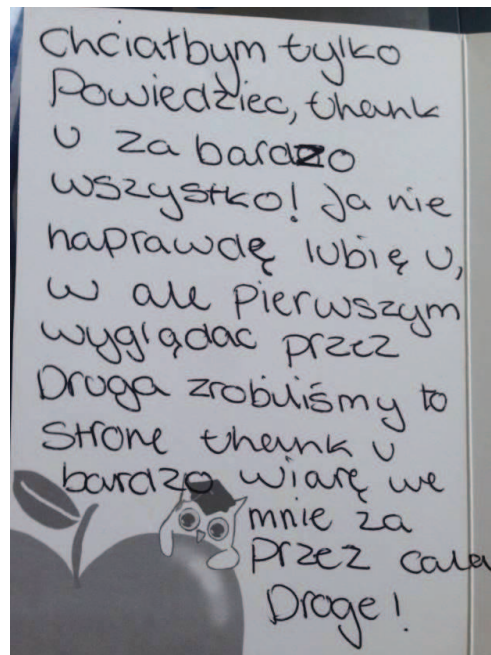 Chciałbym tylko
Powiedziec, thank
U za bardzo
wszystko! Ja nie
naprawdę lubię U,
w ale pierwszym
wyglądac przez
Druga zrobiliśmy to
Strone thank U
bardzo wiarę we
mnie za
Przez cała
Droge!